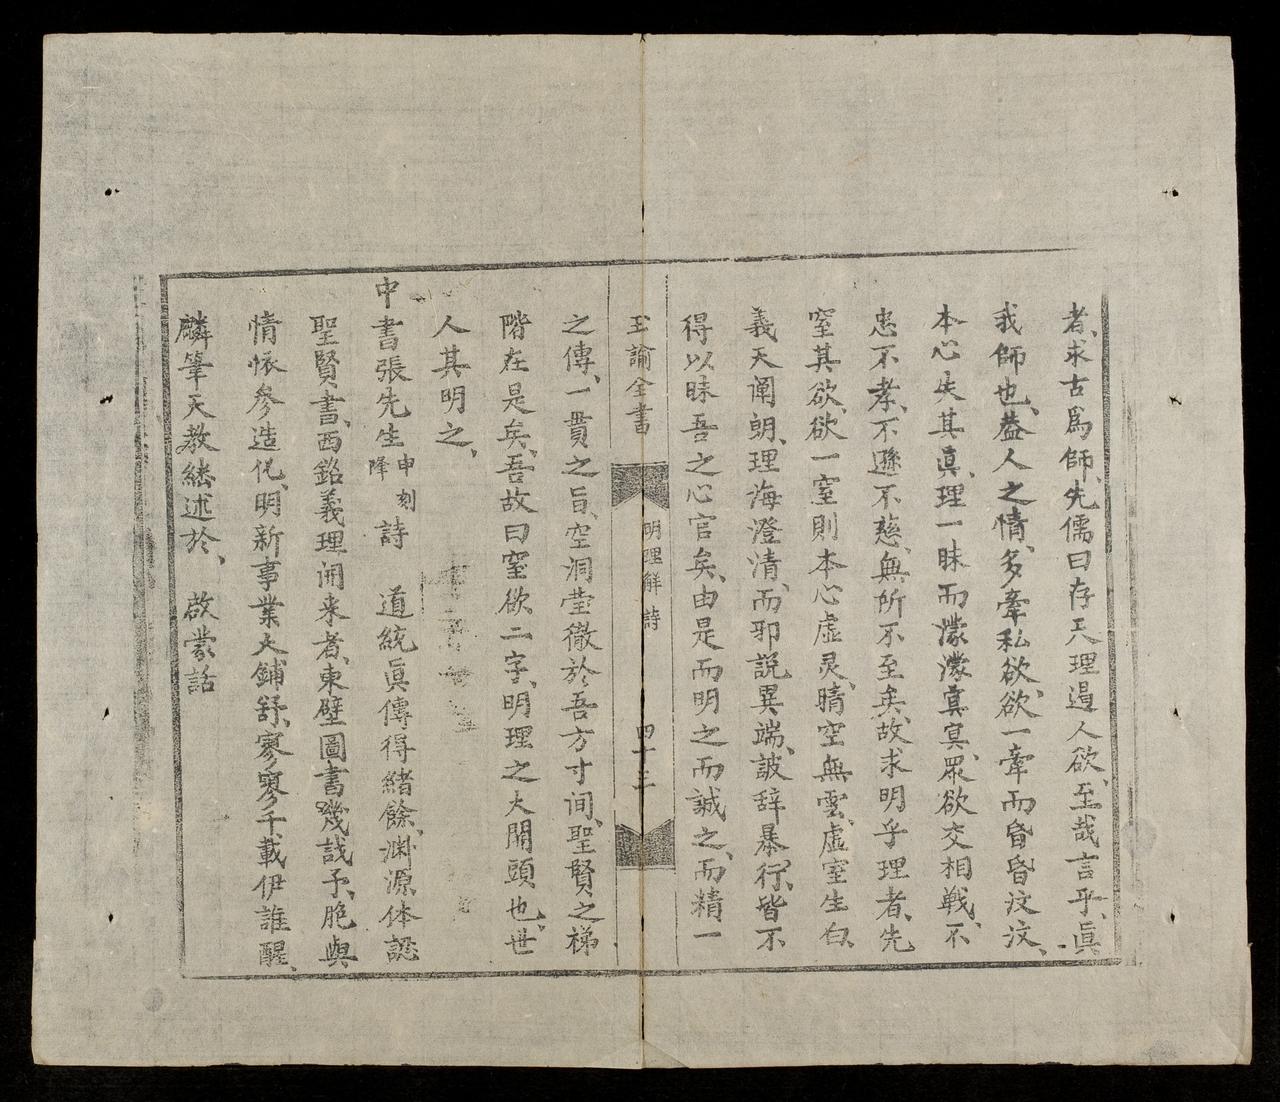 者、求古爲師、先儒曰存天理遏人欲、至哉言乎、眞
我師也、蓋人之情、多牽私欲、欲一牽而昏昏汶汶、
本心失其眞、理一昧而濛濛冥冥、眾欲交相戰、不
忠不孝、不遜不慈、無所不至矣、故求明乎理者、先
窒其欲、欲一窒則本心虛灵、晴空無雲、虛室生白、
義天阐朗、理海澄清、而邪説異端、詖辞暴行、皆不
得以昧吾之心官矣、由是而明之而誠之、而精一
玉諭全書
明理解 詩
四十三
之傳、一貫之旨、空洞莹徹於吾方寸间、聖賢之梯
階在是矣、吾故曰窒欲二字、明理之大開頭也、世
人其明之、
中書張先生申刻降詩 道統眞傳得緒餘、渊源体認
聖賢書、西銘義理闭来者、東壁圖書幾戔予、胞與
情懷參造化、明新事業大鋪舒、寥寥千載伊誰醒、
麟筆天教継述於、 啟蒙話